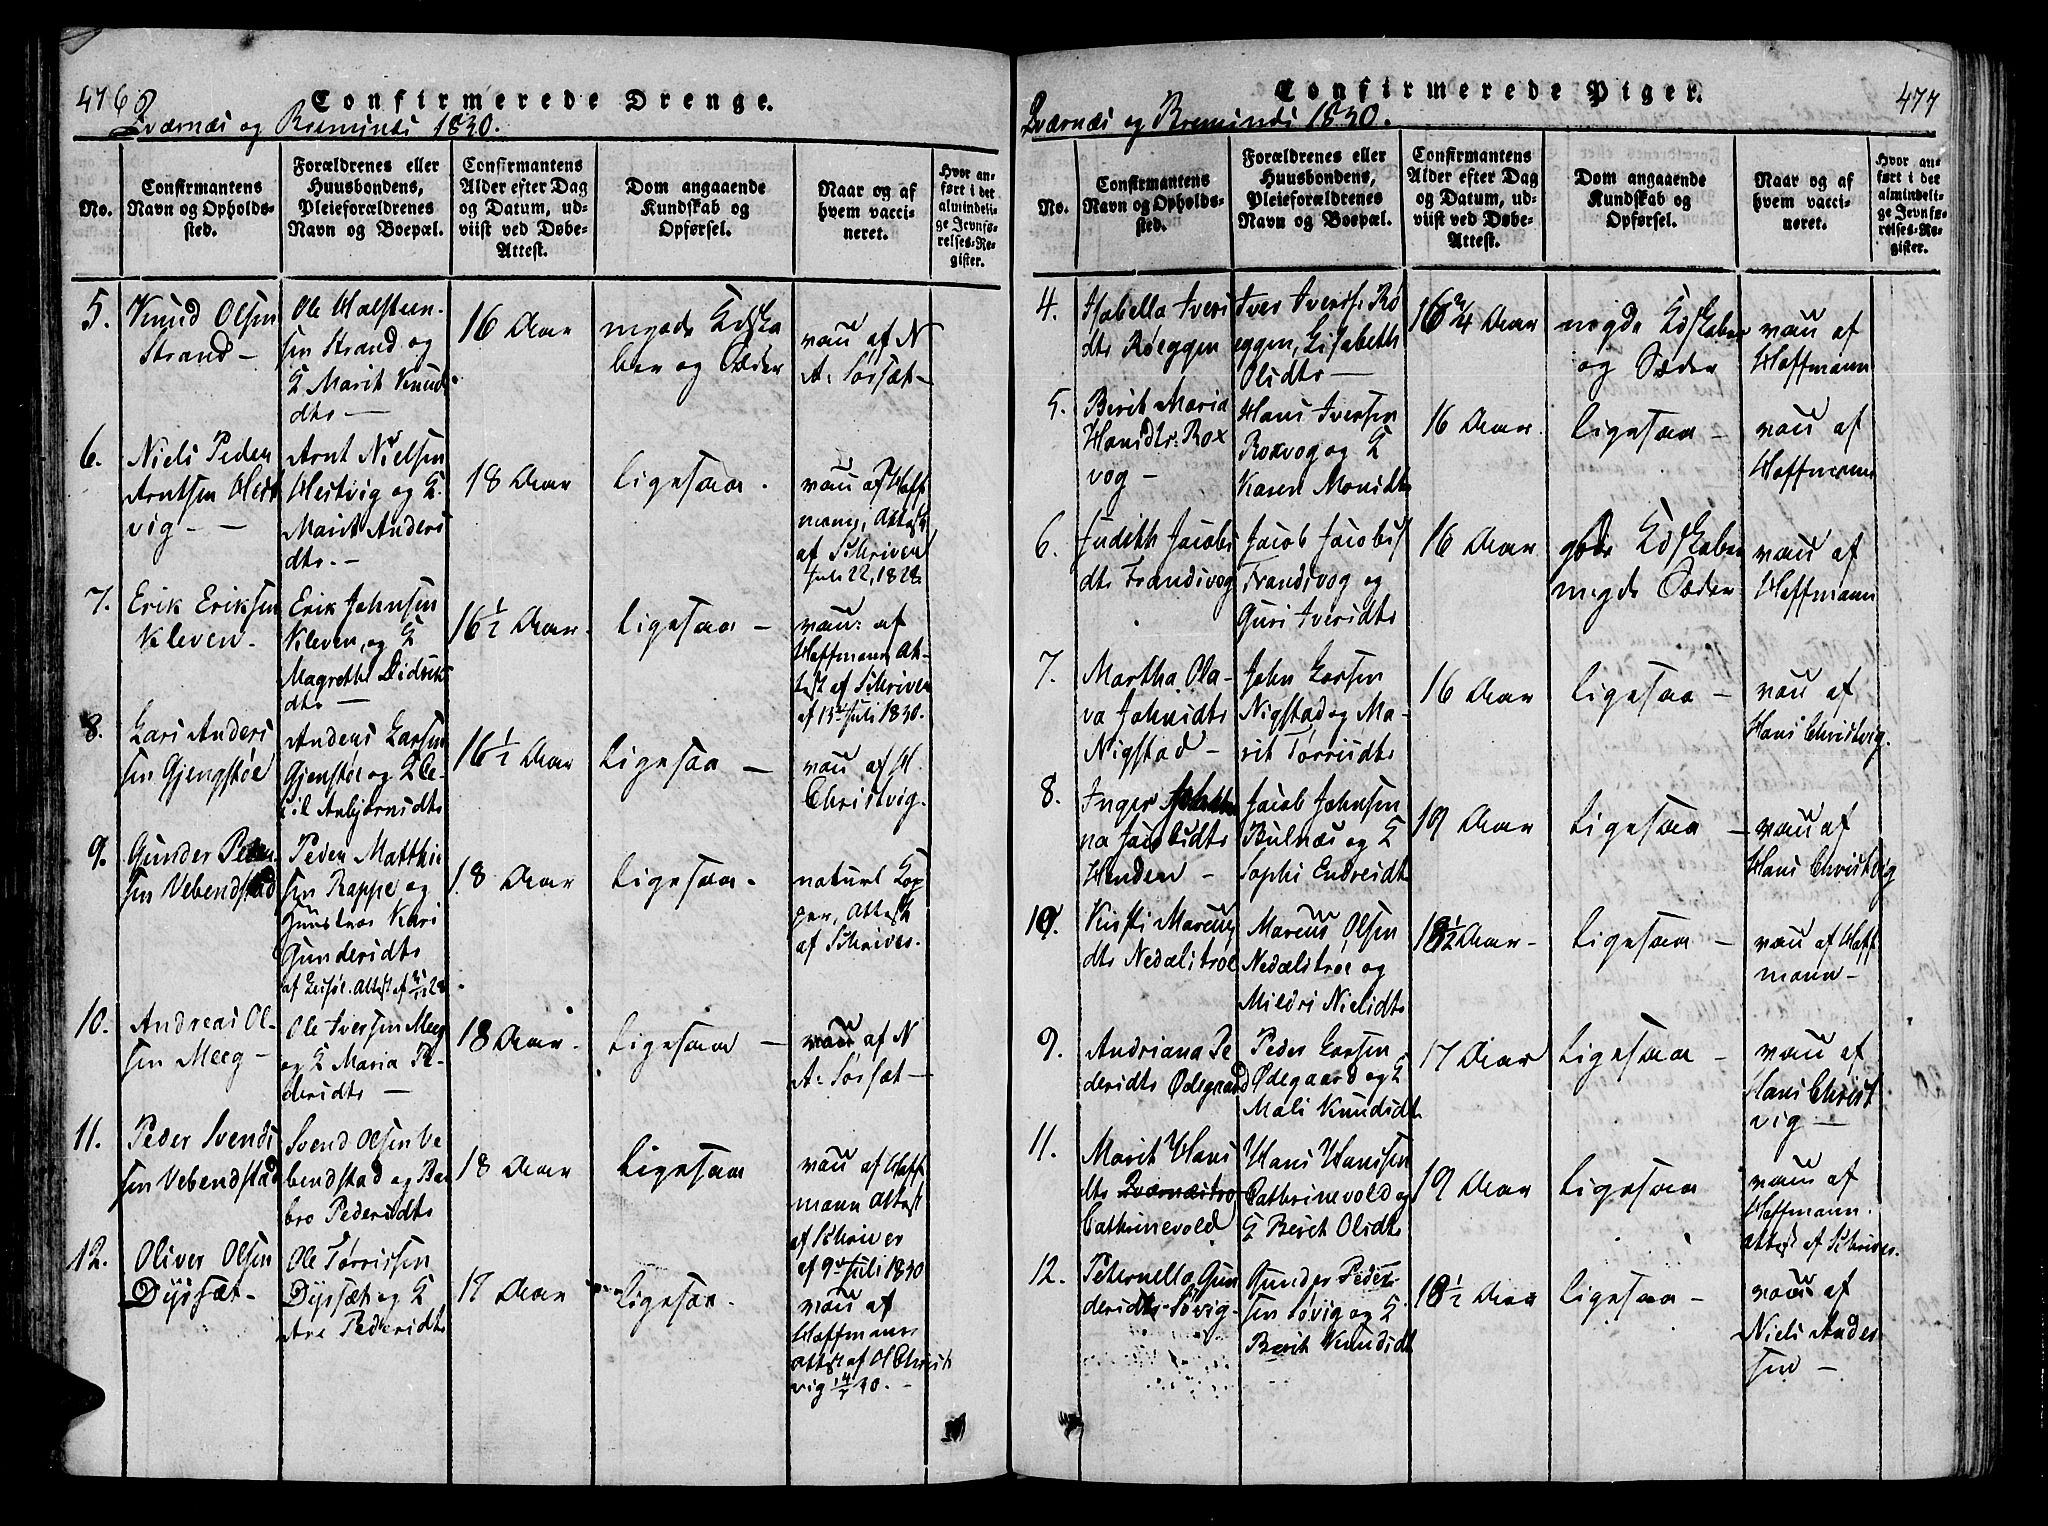 476
Confirmerede Drenge.
Qværnæs og Bremsnæs 1830.
No.
Confirmantens
Navn og Opholds-
sted.
Forældrenes eller
Huusbondens,
Pleieforældrenes
Navn og Boepæl.
Confirmantens
Alder efter Dag
og Datum, ud-
viist ved Døbe-
Attest.
Dom angaaende
Kundskab og
Opførsel.
Naar og af
hvem vacci-
neret.
Hvor an-
ført i det
almindeli-
ge Jevnfø-
relses-Re-
gister.
5.
Knud Olsen
Strand –
Ole Halsteen-
sen Strand og
K Marit Knuds
dtr –
16 Aar
megde Kdska
ber og Sæder
vacc af N
A: Sørsæt –
6.
Niels Peder
Arntsen Hest
vig – –
Arnt Nielsen
Hestvig og K.
Marit Anders
dtr. –
18 Aar
ligesaa .
vacc af Hoff
mann, Attest
af Schriver
Juli 22, 1828
7.
Erik Eriksen
Kleven.
Erik Johnsen
Kleven, og K
Magrethe Didrik
dtr –
16½ Aar.
ligesaa –
vacc: af
Hoffmann At-
test af Schriver
af 13de Juli 1830.
8.
Lars Anders
sen Gjengstøe
Anders Larsen
Gjenstøe og K Ce-
cil Anbjørnsdtr
16½ Aar
ligesaa –
vacc af H.
Christvig.
9.
Gunder Peder
sen Vebenstad
Peder Matthie
sen Rappe og
Huustroe Kari
Gundersdtr
18 Aar
ligesaa.
naturl Kop
per, Attest
af Schriver.
10.
Andreas Ol-
sen Meeg –
Ole Iversen Meeg
og K Maria Pe-
dersdtr –
18 Aar.
ligesaa –
vacc af N
A: Sørsæt –
11.
Peder Svends
sen Vebenstad
Svend Olsen Ve
benstad og Bar
bro Pedersdtr
18 Aar
ligesaa
vacc af Hoff
mann Attest
af Schriver
af 9de Juli 1830
12.
Oliver Olsen
Dyrsæt –
Ole Tørrissen
Dyrsæt og K
Ane Pedersdtr
17 Aar
ligesaa.
vacc af
Hoffmann
attest af H Christ
vig 14/7 30. –
477
Confirmerede Piger.
Qværnæs og Bremsnæs 1830.
No.
Confirmantens
Navn og Opholds-
sted.
Forældrenes eller
Huusbondens,
Pleieforældrenes
Navn og Boepæl.
Confirmantens
Alder efter Dag
og Datum, ud-
viist ved Døbe-
Attest.
Dom angaaende
Kundskab og
Opførsel.
Naar og af
hvem vacci-
neret.
Hvor an-
ført i det
almindeli-
ge Jevnfø-
relses-Re-
gister.
4.
Isabella Ivers
dtr Røeggen
Iver Iversen Rø
eggen, Lisabeth
Olsdtr –
16¾ Aar
megde Kdskaber
og Sæder
vacc af
Hoffmann
5.
Berit Maria
Hansdtr: Rox
vog –
Hans Iversen
Roxvog og K
Karen Monsdtr
16 Aar.
ligesaa –
vacc af
Hoffmann
6.
Judith Jacobs
dtr Trandsvog
Jacob Jacobs
Trandsvog og
Guri Iversdtr
16 Aar
gode Kdskaber
megde Sæder
vacc af
Hoffmann
7.
Martha Ola-
va Johnsdtr
Nigstad –
John Larsen
Nigstad og Ma-
rit Tørrisdtr
16 Aar
ligesaa –
vacc af
Hans Christvig.
8.
na Jacobsdtr
Henden –
Jacob Johnsen
Bulnæs og K
Sophi Endresdtr
19 Aar
ligesaa –
vacc af
Hans Christvig
10.
Kirsti Marcus
dtr Nedalstroe
Marcus Olsen
Nedalstroe og
Mildri Nielsdtr
18½ Aar –
ligesaa –
vacc af Hoff
mann –
9.
Andriana Pe
dersdtr Ødegaard
Peder Larsen
Ødegaard og K
Mali Knudsdtr
17 Aar
ligesaa –
vacc af
Hans Christ
vig –
11.
Marit Hans
dtr Qværnæstroe
Cathrinevold
Hans Hanssen
Cathrinevold og
K Beret Olsdtr
19 Aar
ligesaa
vacc af
Hoffmann.
attest af Schriver.
12.
Peternella Gun
dersdtr Søvig –
Gunder Peder
sen Søvig og K.
Berit Knudsdtr
18½ Aar
ligesaa –
vacc af
Niels Ander
sen –